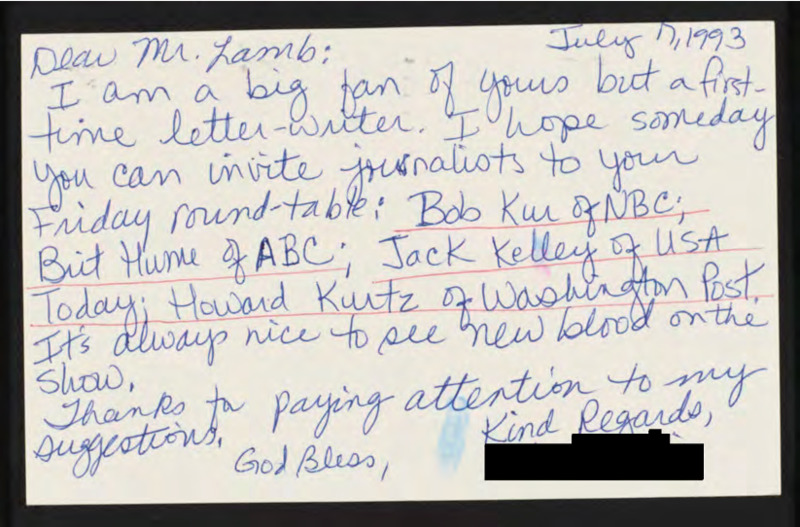 July 17, 1993
Dear Mr. Lamb:
I am a big fan of yours but a first-
time letter-writer. I hope someday
you can invite journalists to your
Friday round-table: Bob Kur of NBC;
Brit Hume of ABC; Jack Kelley of USA
Today; Howard Kurtz of Washington Post.
It's always nice to see new blood on the
show.
Thanks for paying attention to my
suggestions.
Kind Regards,
God Bless,